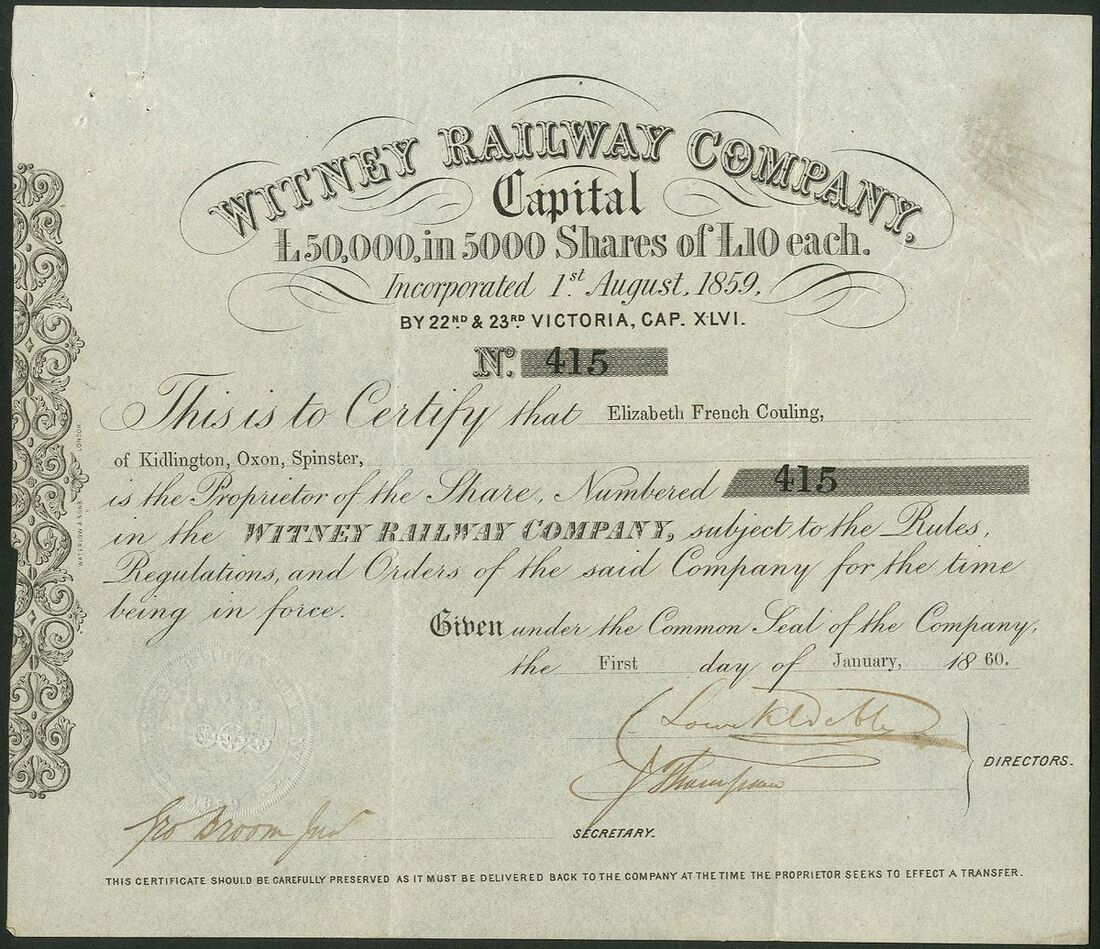 WITNEY RAILWAY COMPANY,
Capital
£50,000, in 5000 Shares of £10 each.
Incorporated 1st August, 1859,
BY 22ND & 23RD VICTORIA, CAP. XLVI.
No. 415
This is to Certify that Elizabeth French Couling,
of Kidlington, Oxon, Spinster,
is the Proprietor of the Share, Numbered 415
in the WITNEY RAILWAY COMPANY, subject to the Rules,
Regulations, and Orders of the said Company for the time
being in force.
Given under the Common Seal of the Company,
the First day of January, 1860.
J Thompson
DIRECTORS.
Geo Broom Junr
SECRETARY.
THIS CERTIFICATE SHOULD BE CAREFULLY PRESERVED AS IT MUST BE DELIVERED BACK TO THE COMPANY AT THE TIME THE PROPRIETOR SEEKS TO EFFECT A TRANSFER.
WATERLOW & SONS LONDON.
RAILWAY